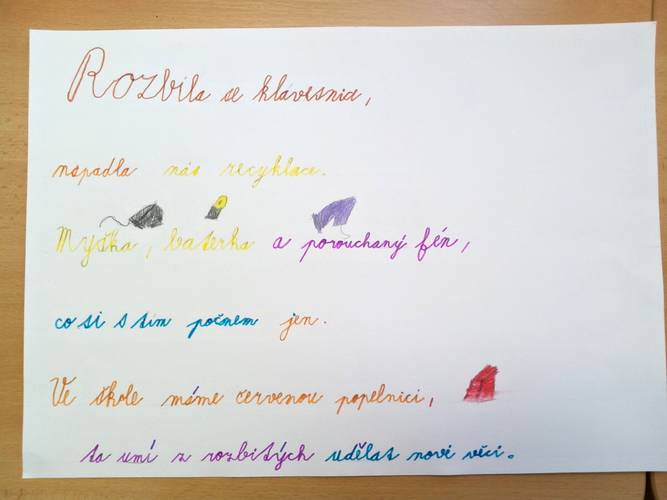 Rozbila se klávesnice,
napadla nás recyklace.
Myška, baterka a porouchaný fén,
co si s tím počnem jen.
Ve škole máme červenou popelnici,
ta umí z rozbitých udělat nové věci.